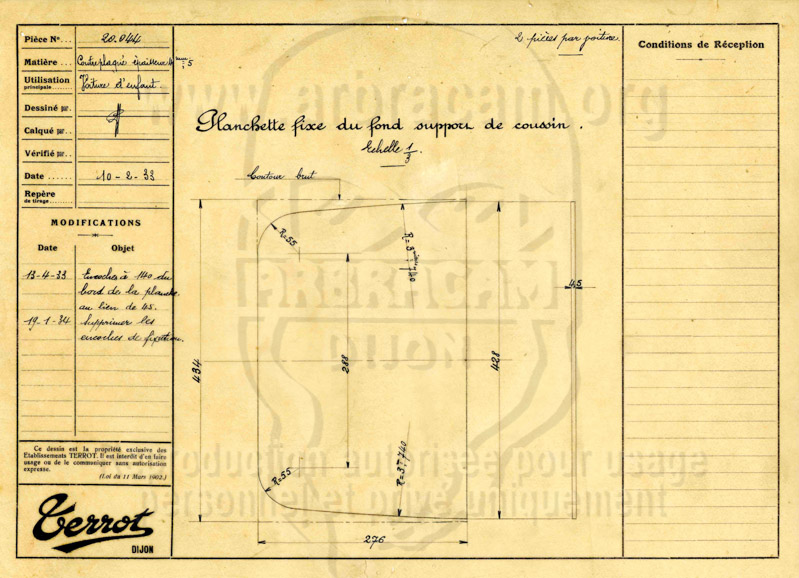 Pièce Nº... 20.044
Matière... Contreplaqué épaisseur 4mm5
Utilisation principale... Voiture d'enfant
Dessiné par.
Calqué par..
Vérifié par..
Date ...... 10-2-33
Repère de tirage
MODIFICATIONS
Date Objet
13-4-33 Encoches à 140 du
bord de la planche
au lieu de 45.
19-1-34 Supprimer les
encoches de fixation.
Ce dessin est la propriété exclusive des
Etablissements TERROT. Il est interdit d'en faire
usage ou de le communiquer sans autorisation
expresse.
(Loi du 11 Mars 1902.)
Terrot
DIJON
2 pièces par voiture
Planchette fixe du fond support de coussin.
Echelle 1/3.
Contour brut
R=55
R=3m740
434
288
428
4.5
R=55
R=3m740
276
Conditions de Réception
www.arbracam.org
ARBRACAM
DIJON
reproduction autorisée pour usage
personnel et privé uniquement